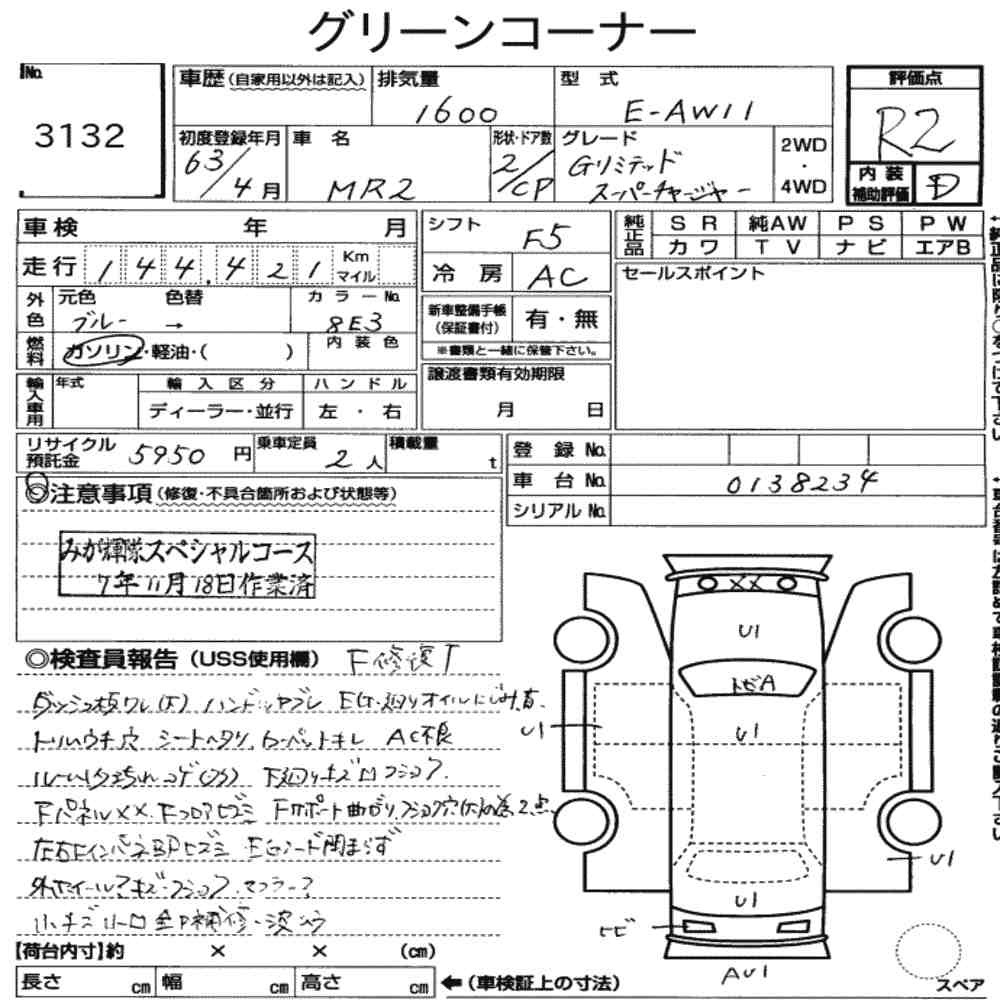 グリーンコーナー
No.
3132
車歴（自家用以外は記入）
排気量
1600
型 式
E-AW11
評価点
R2
初度登録年月
63/4月
車 名
MR2
形状・ドア数
2/CP
グレード
Gリミテッド
スーパーチャージャー
2WD
・
4WD
内 装
補助評価
D
車検 年 月
走行 144,421 Km
マイル
シフト
F5
冷 房
AC
純正品
SR 純AW PS PW
カワ TV ナビ エアB
セールスポイント
外色
元色 色替
ブルー →
カラーNo.
8E3
新車整備手帳
（保証書付）
有・無
※書類と一緒に保管下さい。
燃料
ガソリン・軽油・（ ）
内 装 色
輸入車用
年式
輸 入 区 分
ディーラー・並行
ハ ン ド ル
左 ・ 右
譲渡書類有効期限
月 日
リサイクル
預託金
5950 円
乗車定員
2人
積載量
t
登 録 No.
車 台 No. 0138234
シリアル No.
◎注意事項（修復・不具合箇所および状態等）
みが輝隊スペシャルコース
7年11月18日作業済
◎検査員報告（USS使用欄） F修復T
ダッシュ板ワレ(大) ハンドルヤブレ EG廻りオイルにじみ有
トリムウチ穴 シートヘタリ、カーペットキレ AC不良
下廻りキズ
FパネルXX. Fフロアヒズミ Fサポート曲がり
左右Rインパネ部Pヒズミ EGフード閉まらず
小キズ 全P補修・波
【荷台内寸】約 × × （cm）
長さ cm 幅 cm 高さ cm ←（車検証上の寸法）
XX
U1
トビA
U1
U1
U1
U1
トビ
AU1
スペア